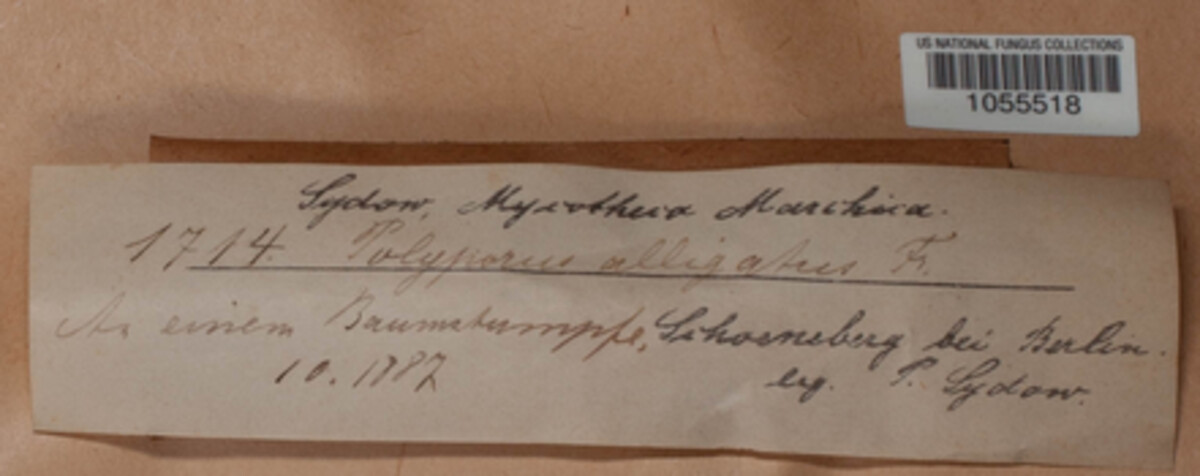 US NATIONAL FUNGUS COLLECTIONS
1055518
Sydow, Mycotheca Marchica.
1714. Polyporus alligatus Fr.
An einem Baumstumpfe, Schoeneberg bei Berlin.
10. 1887 leg. P. Sydow.